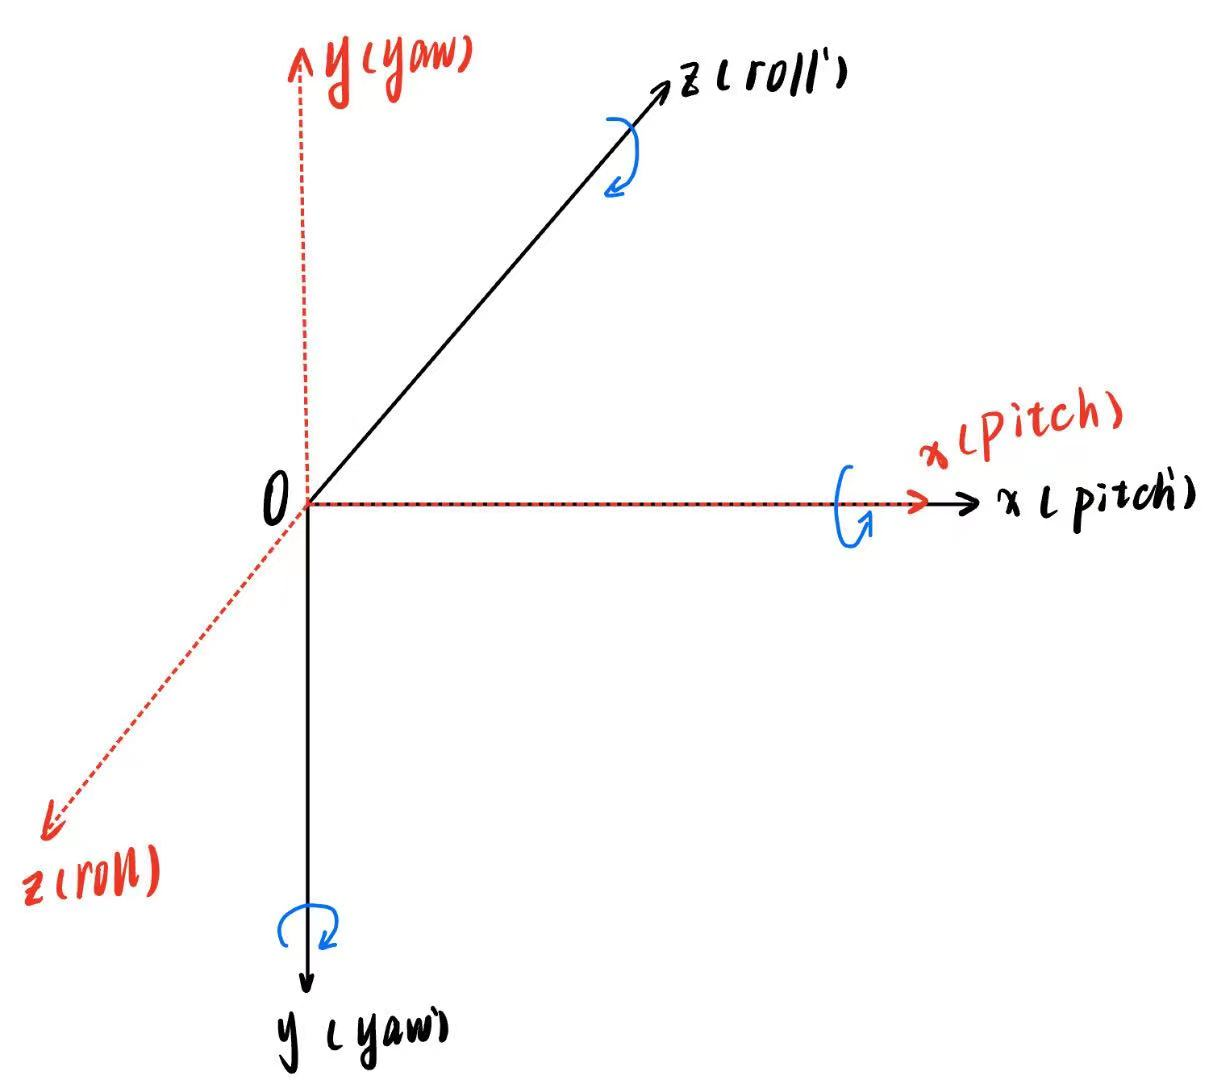 y (yaw)
z (roll)
x (pitch)
0
x (pitch)
z (roll)
y (yaw)